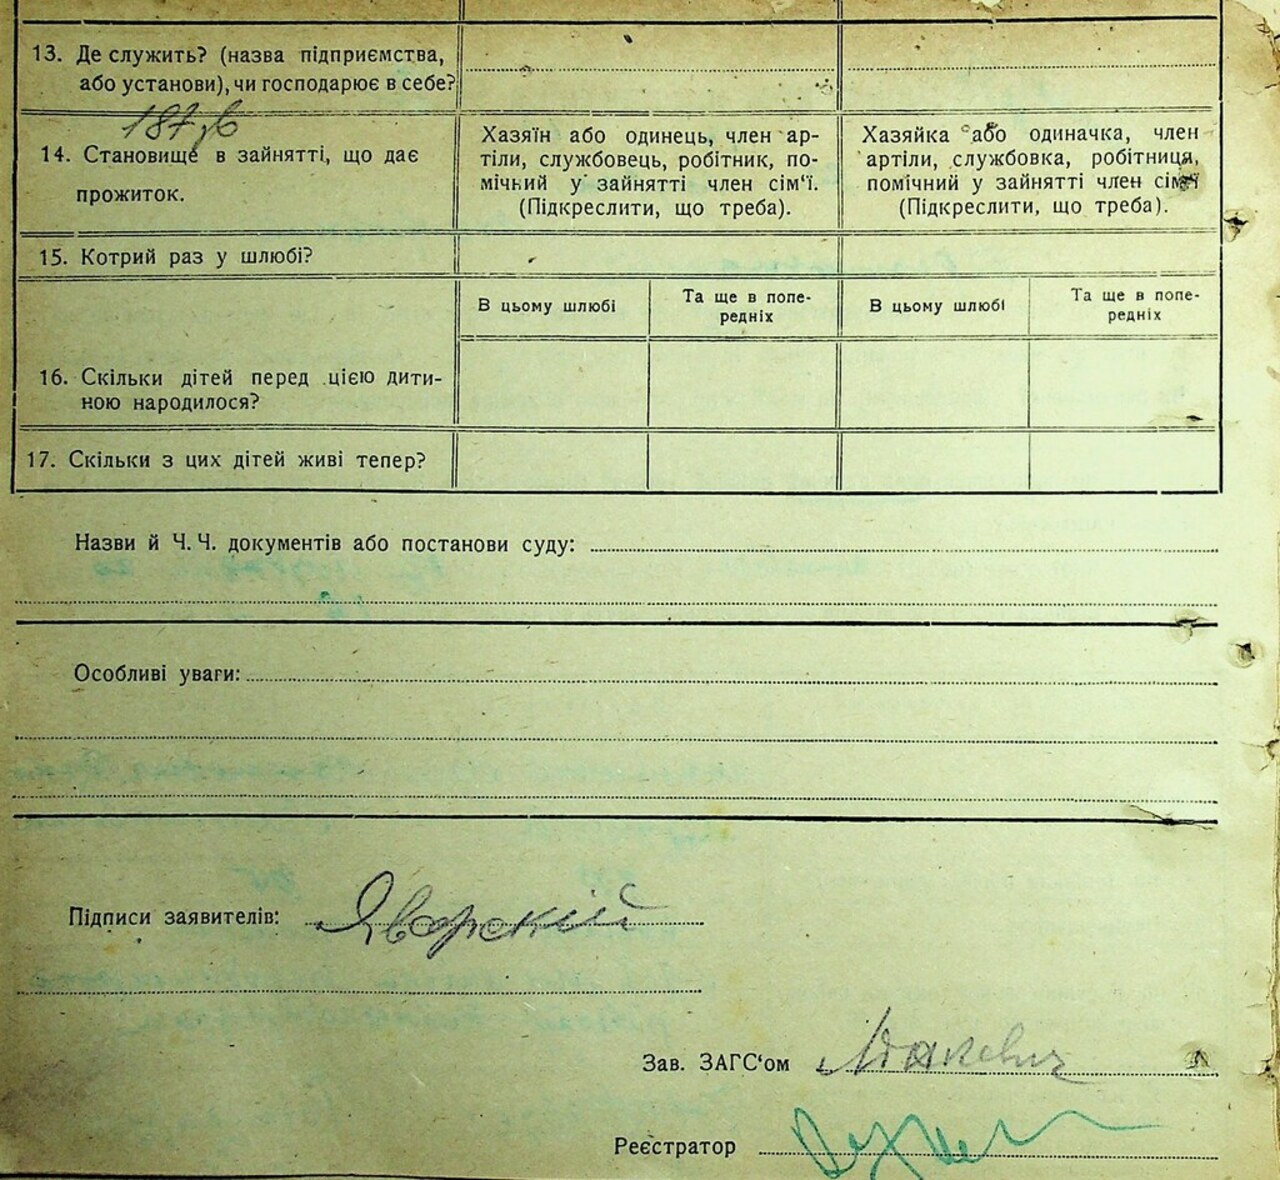 13. Де служить? (назва підприємства,
або установи), чи господарює в себе?
14. Становище в зайнятті, що дає
прожиток.
Хазяїн або одинець, член ар-
тіли, службовець, робітник, по-
мічний у зайнятті член сім‘ї.
(Підкреслити, що треба).
Хазяйка або одиначка, член
артіли, службовка, робітниця,
помічний у зайнятті член сім‘ї
(Підкреслити, що треба).
15. Котрий раз у шлюбі?
В цьому шлюбі
Та ще в попе-
редніх
В цьому шлюбі
Та ще в попе-
редніх
16. Скільки дітей перед цією дити-
ною народилося?
17. Скільки з цих дітей живі тепер?
Назви й Ч. Ч. документів або постанови суду:
Особливі уваги:
Підписи заявителів: Яворскій
Зав. ЗАГС‘ом
Реєстратор